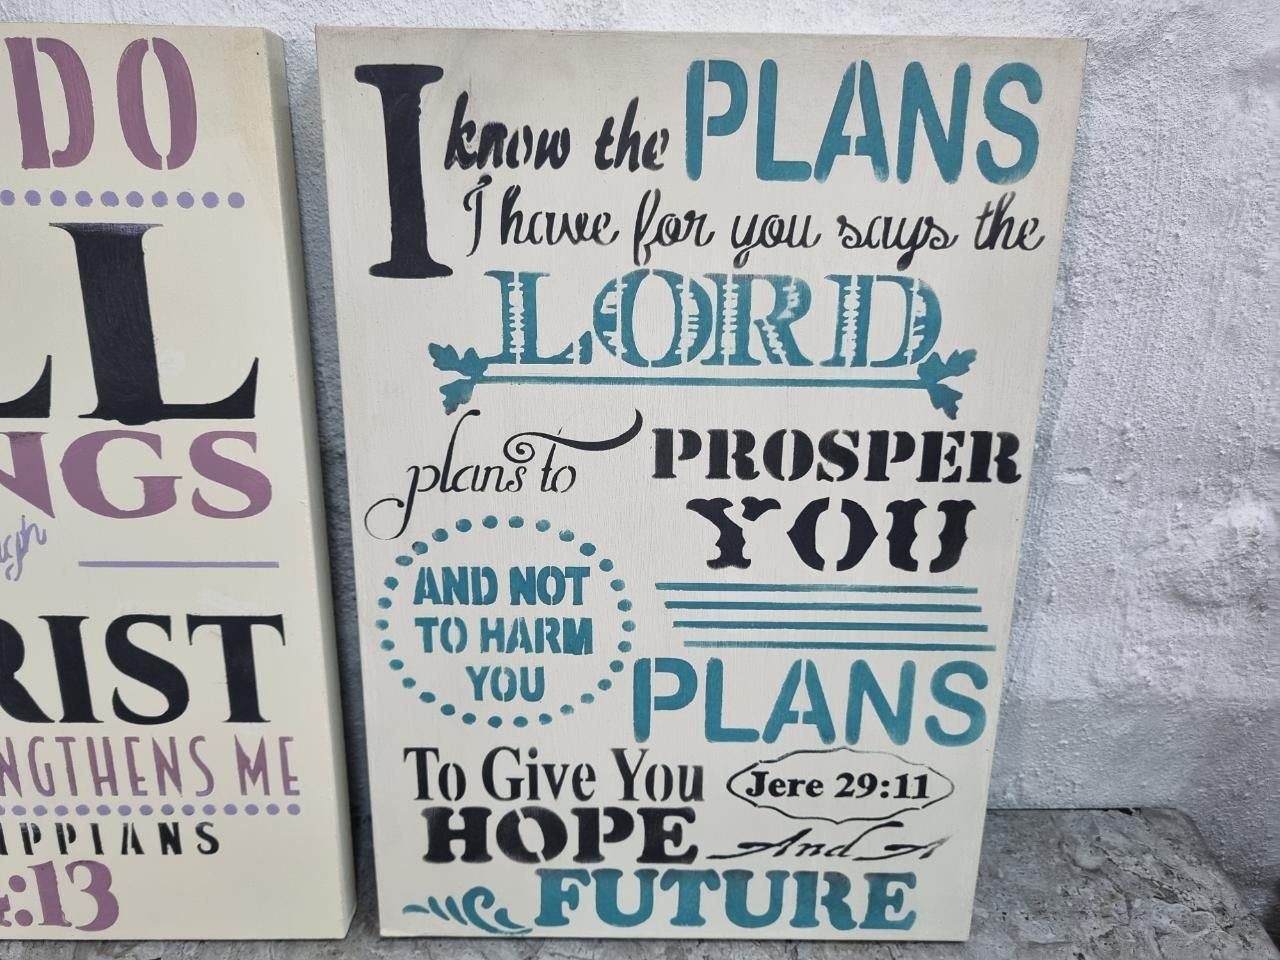 DO
LL
NGS
RIST
NGTHENS ME
IPPIANS
4:13
I know the PLANS
I have for you says the
LORD
plans to PROSPER
YOU
AND NOT
TO HARM
YOU
PLANS
To Give You
Jere 29:11
HOPE And A
FUTURE